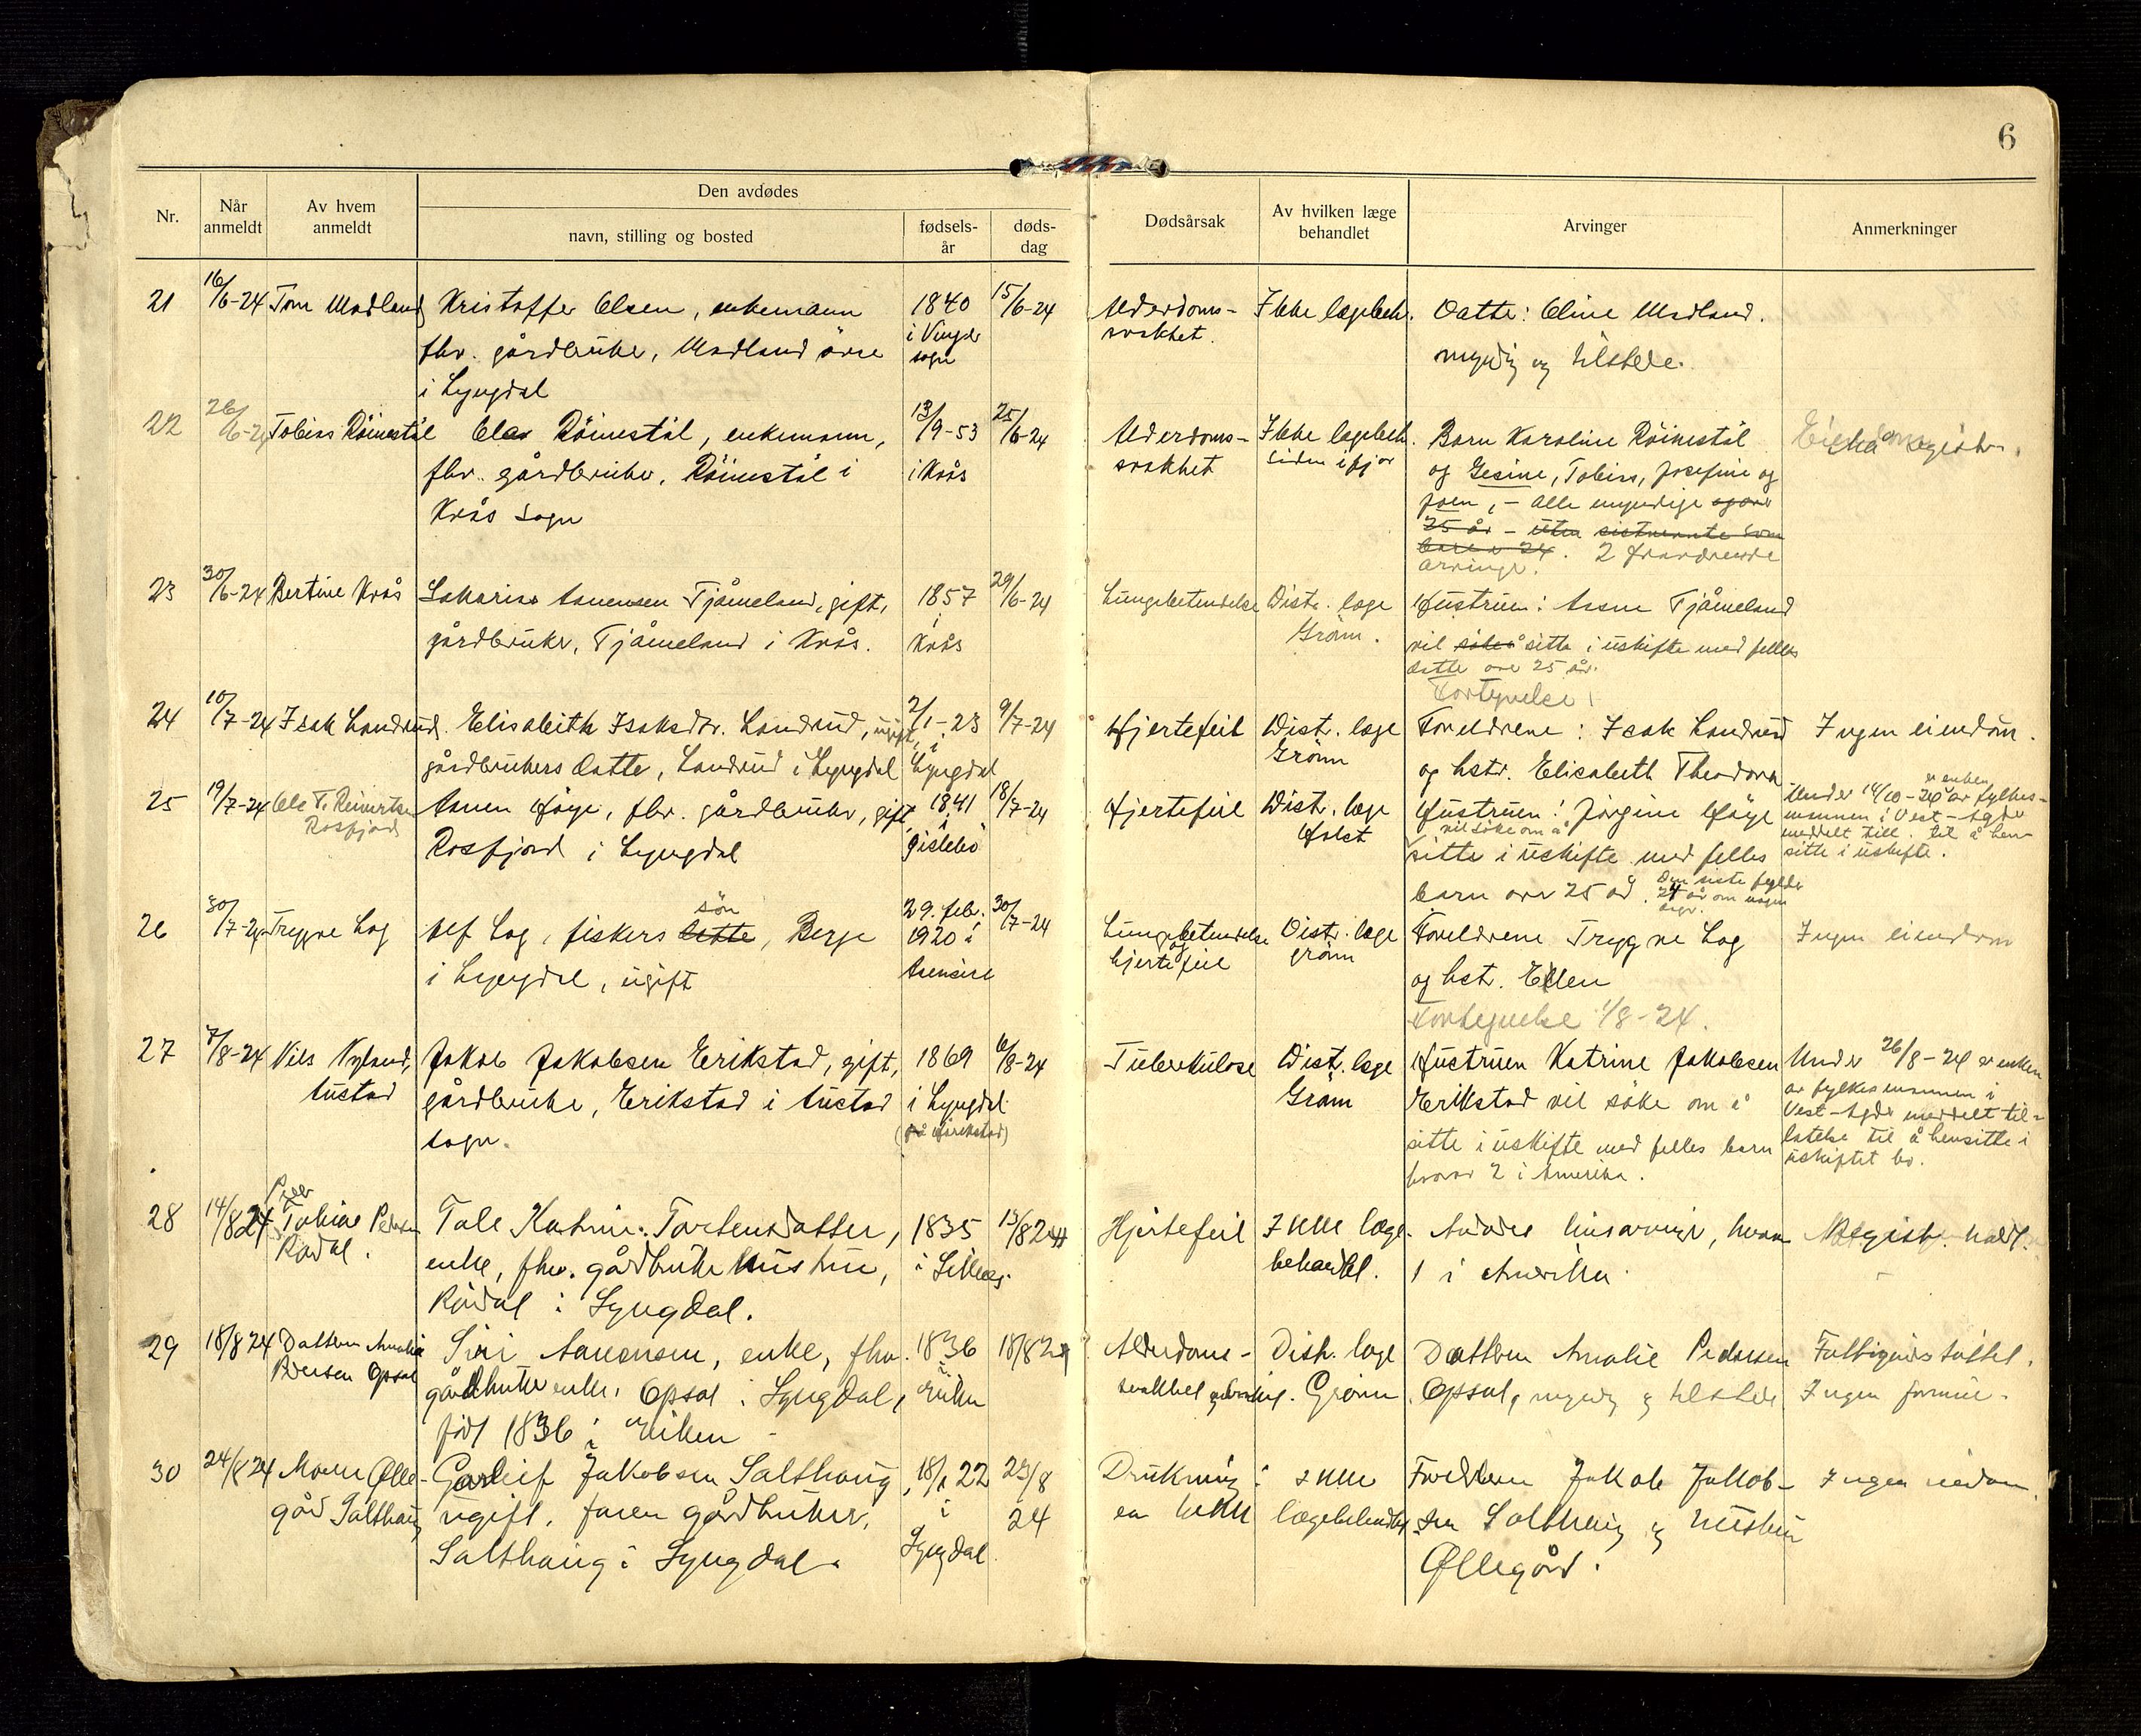 6
Den avdødes
Nr.
Når anmeldt
Av hvem anmeldt
navn, stilling og bosted
fødsels-år
døds-dag
Dødsårsak
Av hvilken læge behandlet
Arvinger
Anmerkninger
21 16/6-24 Tom Madland Kristoffer Olsen, enkemann 1840 15/6-24 Alderdoms- Ikke lægebeh. Datte: Oline Madland.
fhv. gårdbruke, Madland övre i sogn svakhet. myndig og tilstede.
i Lyngdal
22 26/6-24 Tobias Röinestål Olav Röinestål, enkemann, 13/9-53 25/6-24 Alderdoms- Ikke lægebeh. Barn Karoline Röinestål
fhv. gårdbruker, Röinestål i i Kvås svakhet siden ifjor og Gesine, Tobias, Josefine og
Kvås sogn
alle myndige
25 år - uten sistnevnte som
bare er 24. 2
arvinge.
23 30/6-24 Bertine Kvås Sakarias Tjåmeland, gift, 1857 29/6-24 Lungebetendelse Distr. læge Hustruen: Tjåmeland
gårdbruker, Tjåmeland i Kvås. i Kvås Gröm. vil sitte i uskifte med felles
datte over 25 år.
24 10/7-24 Isak Landrud. Elisabeth Isaksdr. Landrud, ugift, 2/1-23 9/7-24 Hjertefeil Distr. læge Foreldrene: Isak Landrud Ingen eiendom.
gårdbrukers datte, Landrud i Lyngdal i Lyngdal Gröm og hstr. Elisabeth Theodora
25 19/7-24 Ole T. Reinertsen Aanen Höye, fhv. gårdbruker, gift 1841 18/7-24 Hjertefeil Distr. læge Hustruen: Jörgine Höye Under 14/10-24 er enken av fylkes-
Rosfjord Rosfjord i Lyngdal i Gislebö Holst vil söke om å mannen i Vest-Agder
sitte i uskifte med felles meddelt till. til å hen-
sitte i uskifte.
barn over 25 år. Den siste fylde
24 år om nogen
dage.
26 30/7-24 Trygve Log Log, fiskers dette sön, Berge 29. feb. 1920 i 30/7-24 Lungebetendelse og Distr. læge Foreldrene Trygve Log Ingen eiendom
i Lyngdal, ugift hjertefeil Gröm og hst. Ellen
1/8-24.
27 7/8-24 Nils Nyland, Jakob Jakobsen Erikstad, gift, 1869 6/8-24 Tuberkulose Distr. læge Hustruen Katrine Jakobsen Under 26/8-24 er enken
Austad gårdbruke, Erikstad i Austad i Lyngdal Gröm Erikstad vil söke om å av fylkesmannen i
sogn. sitte i uskifte med felles barn Vest-Agder meddelt til-
hvorav 2 i Amerika. latelse til å hensitte i
uskiftet bo.
28 14/8 24 Pedersen Tale Katrine Torkensdatter, 1835 13/8 24 Hjertefeil Ikke læge- livsarvinge, hvorav Registr. holdt.
Rödal. enke, fhv. gårdbruke hustru, i behandlet. 1 i Amerika.
Rödal i Lyngdal.
29 18/8 24 Datteren Amalie Siri Aanensen, enke, fhv. 1836 18/8 24 Alderdoms- Distr. læge Datteren Amalie Pedersen Fattigunderstöttet.
Pedersen Opsal gårdbruker enke, Opsal i Lyngdal, i Eiken Gröm Opsal, myndig og tilstede Ingen formue.
född 1836 i Eiken
30 24/8 24 Moren Ølle- Jakobsen Salthaug, 18/1 22 23/8 Drukning i Ikke Foreldrene Jakob Jakob- Ingen eiendom.
gård Salthaug ugift, faren gårdbruker, i 24 en bekk lægebehandlet sen Salthaug og hustru
Salthaug i Lyngdal. Lyngdal. Øllegård.